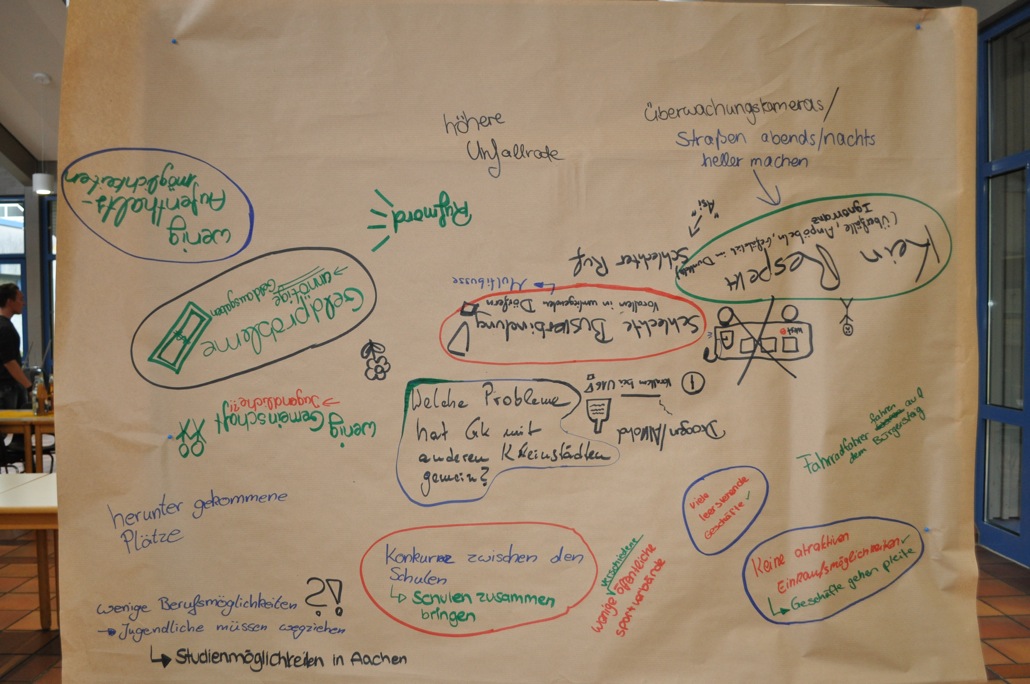 höhere
Unfallrate
Überwachungskameras/
Straßen abends/nachts
heller machen
wenig
Aufenthalts-
möglichkeiten
Rufmord
"Asi"
Schlechter Ruf
Kein Respekt
(Überfälle, Anpöbeln, Gefahr in Dunkeln)
Ignoranz
Geldprobleme
→ unnötige
Geldausgaben
→ Multibusse
Schlechte Busverbindung
Vorallem in umliegenden Dörfern
wenig Gemeinschaft
→ Jugendliche!!
Drogen/Alkohol
Vorallem bei U16
!
Welche Probleme
hat Gk mit
anderen Kleinstädten
gemein?
Fahrradfahrer fahren auf
dem Bürgerstag
viele
leerstehende
Geschäfte
herunter gekommene
Plätze
Konkurrenz zwischen den
Schulen
↳ Schulen zusammen
bringen
wenige verschiedene öffentliche
sportverbände
Keine atraktiven
Einkaufsmöglichkeiten
↳ Geschäfte gehen pleite
wenige Berufsmöglichkeiten ?!
→ Jugendliche müssen wegziehen
↳ Studienmöglichkeiten in Aachen